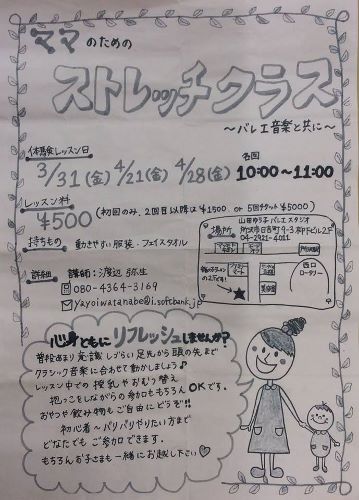 ママのための
ストレッチクラス
～バレエ音楽と共に～
体験レッスン日
3/31(金) 4/21(金) 4/28(金) 各回 10:00～11:00
レッスン料
¥500 (初回のみ、2回目以降は¥1500 or 5回チケット¥5000)
持ちもの 動きやすい服装・フェイスタオル
場所
山田ゆり子バレエスタジオ
所沢市日吉町9-3 本戸ビル2F
04-2921-4011
西口
ロータリー
詳細
講師：渡辺 弥生
080-4364-3169
yayoiwatanabe@i.softbank.jp
心身ともにリフレッシュしませんか？
普段あまり意識しづらい足先から頭の先まで
クラシック音楽に合わせて動かしましょう♪
レッスン中での授乳やおむつ替え
抱っこをしながらの参加ももちろんOKです。
おやつや飲み物もご自由にどうぞ!!
初心者～バリバリやりたい方まで
どなたでもご参加できます。
もちろんお子さまも一緒にお越し下さい♡